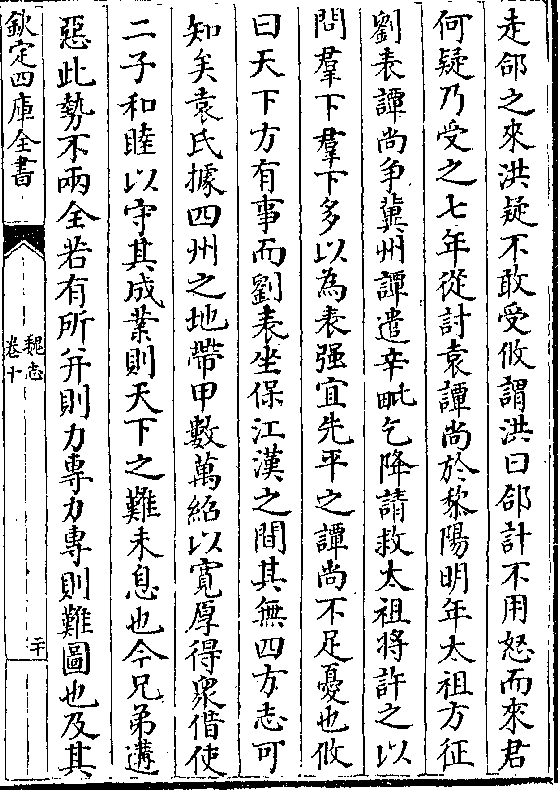 走郃之來洪疑不敢受攸謂洪曰郃計不用怒而來君
何疑乃受之七年從討袁譚尚於黎陽明年太祖方征
劉表譚尚争冀州譚遣辛毗乞降請救太祖将許之以
問羣下羣下多以為表强宜先平之譚尚不足憂也攸
曰天下方有事而劉表坐保江漢之間其無四方志可
知矣袁氏據四州之地帶甲數萬紹以寛厚得衆借使
二子和睦以守其成業則天下之難未息也今兄弟遘
惡此勢不兩全若有所并則力專力專則難圖也及其
欽定四庫全書
魏志
卷十
二十